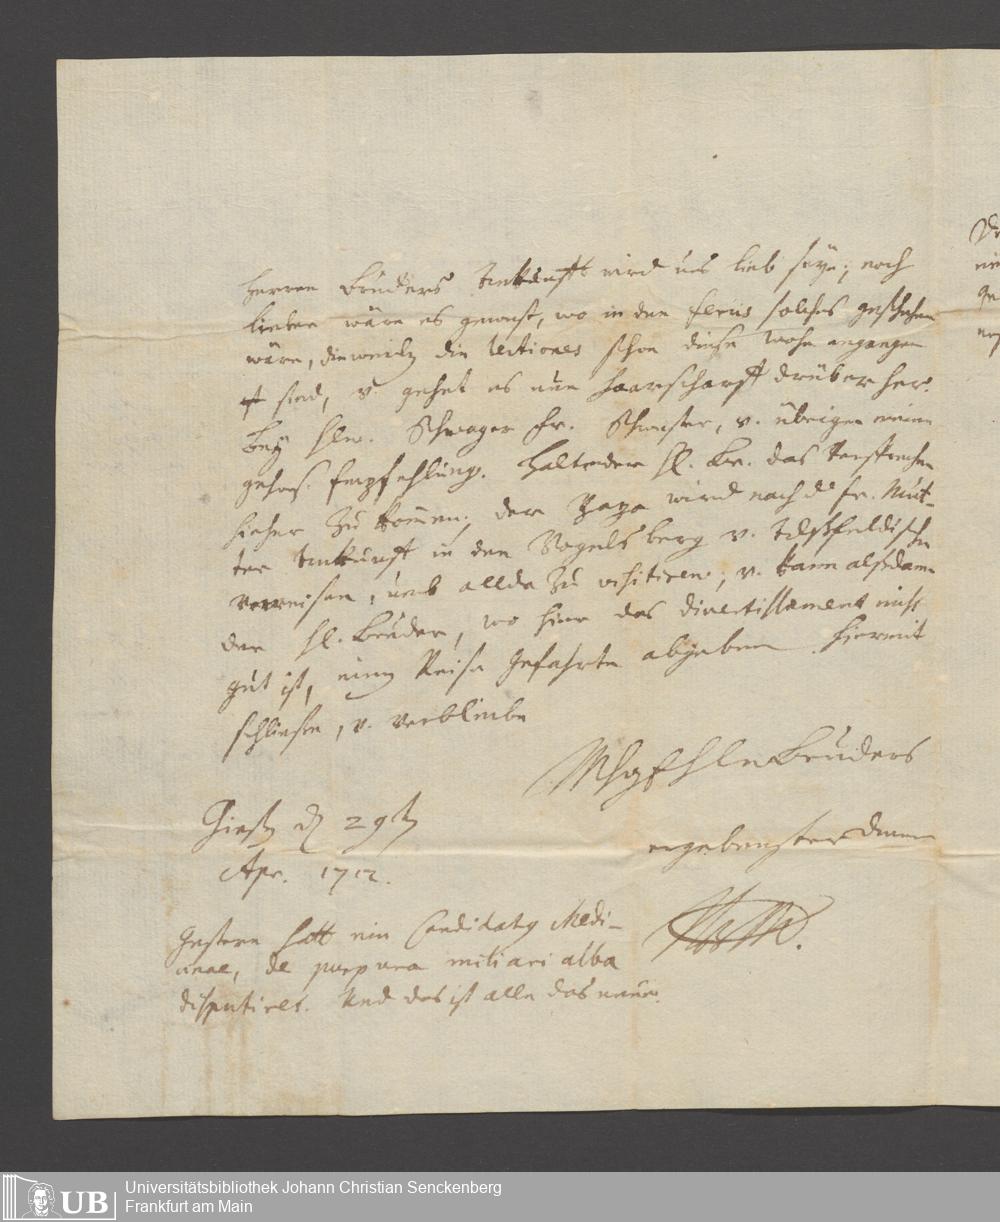 Herren Bruders Ankunfft wird uns lieb seyn; noch
lieber wäre es gewest, wo in den feriis solches geschehen
wäre, dieweiln die lectiones schon diese Woche angangen
sind, v. gehet es nun haarscharff drüber her.
Bey Hln. Schwager Fr. Schwester, v. übrigen meine
gehors. Empfehlung. Halt der Hl. Br. das Versprechen
hieher zu kommen; der Papa wird nach der Fr. Mut-
ter Ankunfft in den Vogelsberg v.
verreisen, umb allda zu visitiren; v. kann alßdann
der Hl. Bruder, wo hier das divertissement nicht
gut ist, einen Reise Gefährten abgeben. Hiermit
schliese, v. verbleibe
Hln Bruders
Gießen d 29ten
ergebenster Diener
Apr. 1712.
Gestern hatt ein Candidatus Medi-
cinae, de purpura miliari alba
disputiret. Und das ist alle das neue.
UB
Universitätsbibliothek Johann Christian Senckenberg
Frankfurt am Main